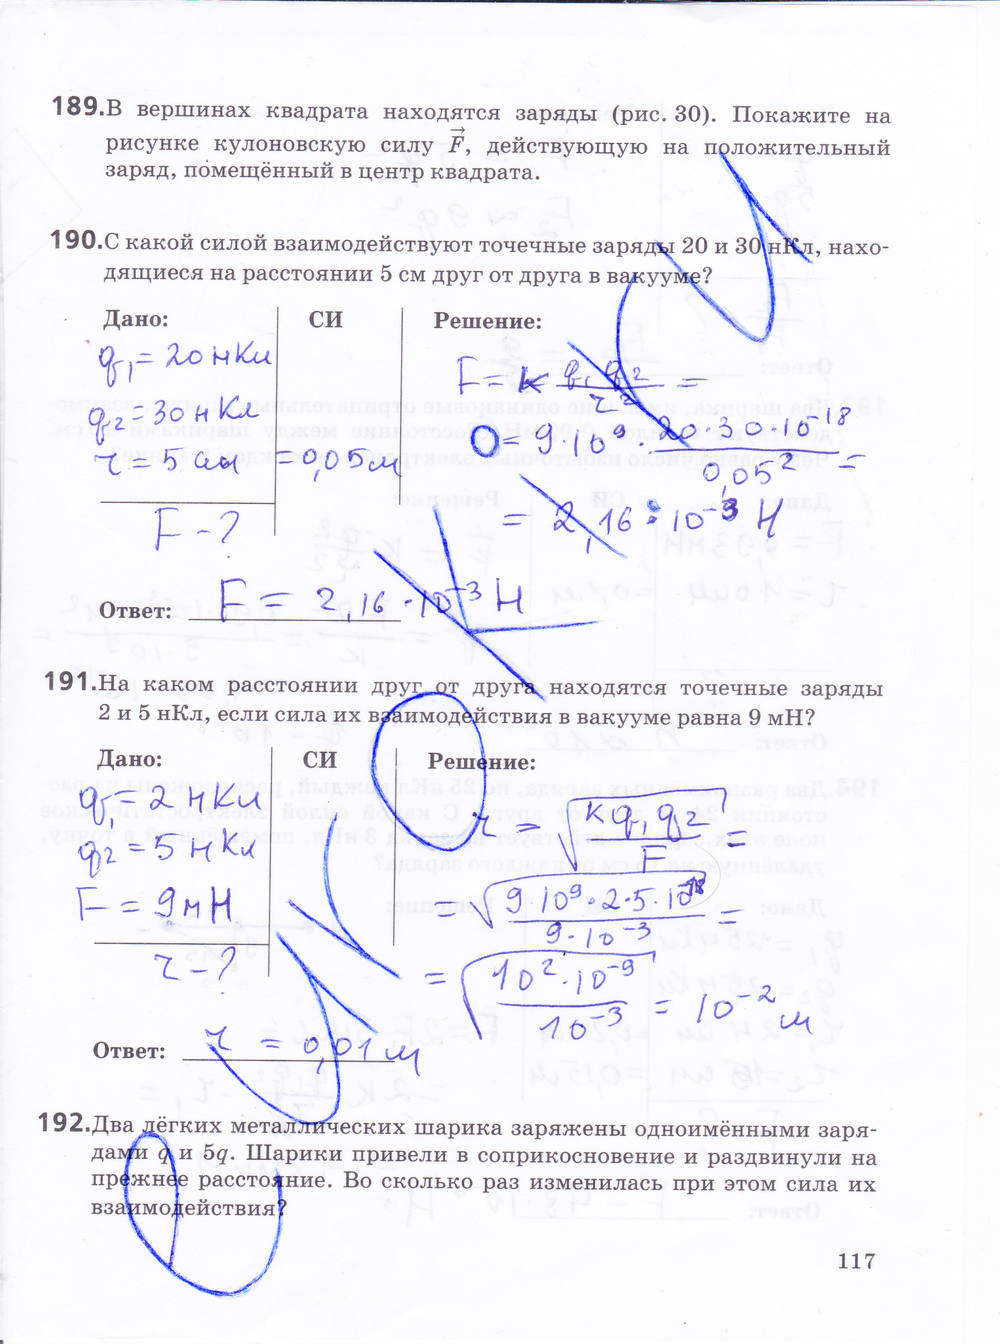 189. В вершинах квадрата находятся заряды (рис. 30). Покажите на
рисунке кулоновскую силу F⃗, действующую на положительный
заряд, помещённый в центр квадрата.
190. С какой силой взаимодействуют точечные заряды 20 и 30 нКл, нахо-
дящиеся на расстоянии 5 см друг от друга в вакууме?
Дано: СИ Решение:
q₁ = 20 нКл
F = k q₁q₂/r² =
q₂ = 30 нКл
= 9·10⁹· 20·30·10⁻¹⁸/0,05² =
r = 5 см = 0,05 м
= 2,16·10⁻³ Н
F - ?
Ответ: F = 2,16·10⁻³ Н
191. На каком расстоянии друг от друга находятся точечные заряды
2 и 5 нКл, если сила их взаимодействия в вакууме равна 9 мН?
Дано: СИ Решение:
q₁ = 2 нКл
r = √(kq₁q₂/F) =
q₂ = 5 нКл
F = 9 мН
= √(9·10⁹·2·5·10⁻¹⁸/9·10⁻³) =
r - ?
= √(10²·10⁻⁹/10⁻³) = 10⁻² м
Ответ: r = 0,01 м
192. Два лёгких металлических шарика заряжены одноимёнными заря-
дами q и 5q. Шарики привели в соприкосновение и раздвинули на
прежнее расстояние. Во сколько раз изменилась при этом сила их
взаимодействия?
117